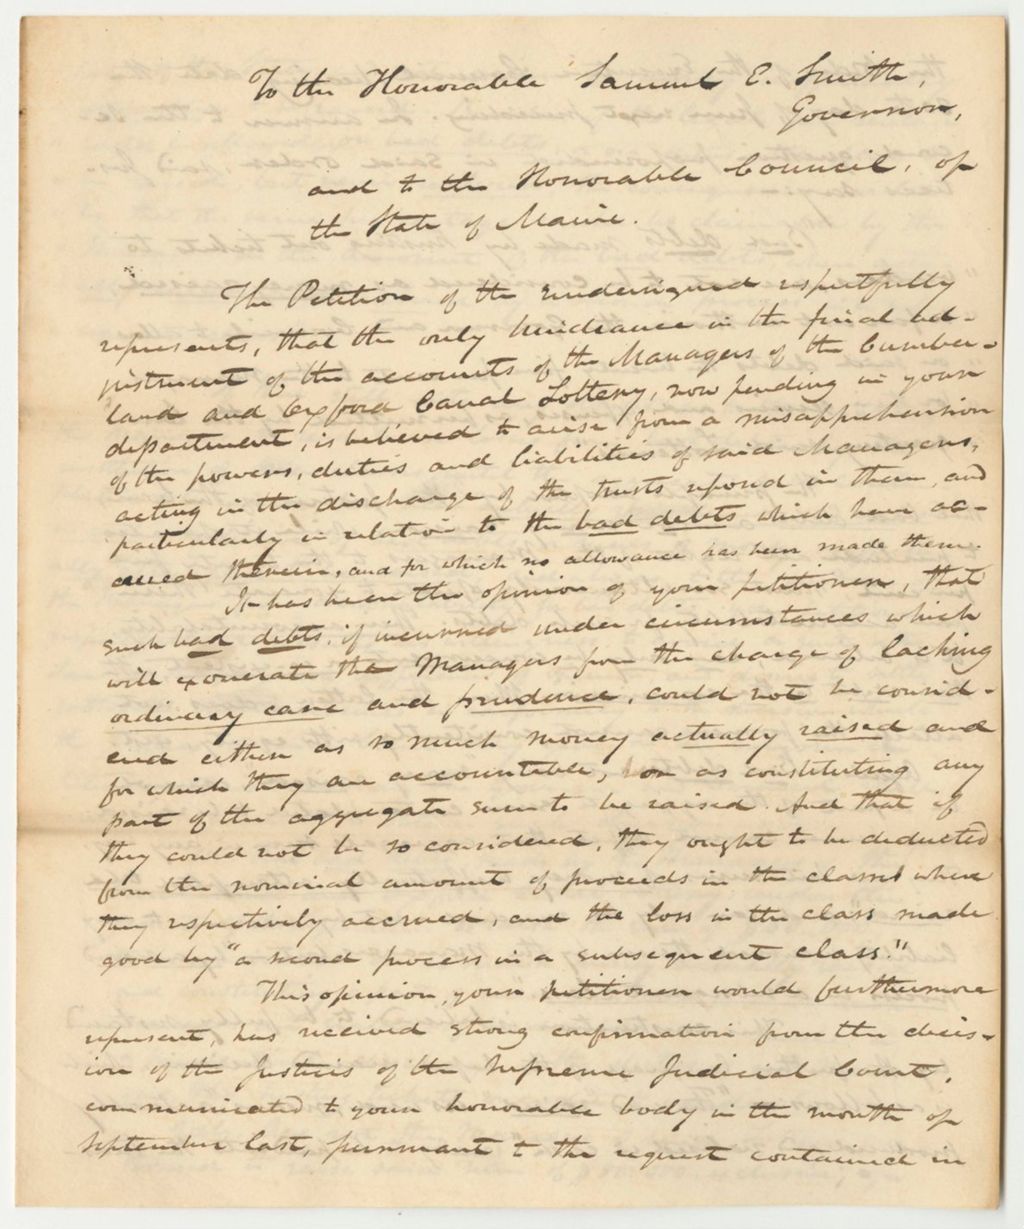 To the Honorable Samuel E. Smith,
Governor,
and to the Honorable Council, of
the State of Maine.
The Petition of the undersigned respectfully
represents, that the only hindrance in the final ad-
justment of the accounts of the Managers of the Cumber-
land and Oxford Canal Lottery, now pending in your
department, is believed to arise from a misapprehension
of the powers, duties and liabilities of said Managers,
acting in the discharge of the trusts reposed in them, and
particularly in relation to the bad debts which have ac-
crued therein, and for which no allowance has been made them.
It has been the opinion of your petitioner, that
such bad debts, if incurred under circumstances which
will exonerate the Managers from the charge of lacking
ordinary care and prudence, could not be consid-
ered either as so much money actually raised and
for which they are accountable, or as constituting any
part of the aggregate sum to be raised. And that if
they could not be so considered, they ought to be deducted
from the nominal amount of proceeds in the class where
they respectively accrued, and the loss in the class made
good by "a second process in a subsequent class."
This opinion, your petitioner would furthermore
represent, has received strong confirmation from the decis-
ion of the Justices of the Supreme Judicial Court,
communicated to your honorable body in the month of
September last, pursuant to the request contained in